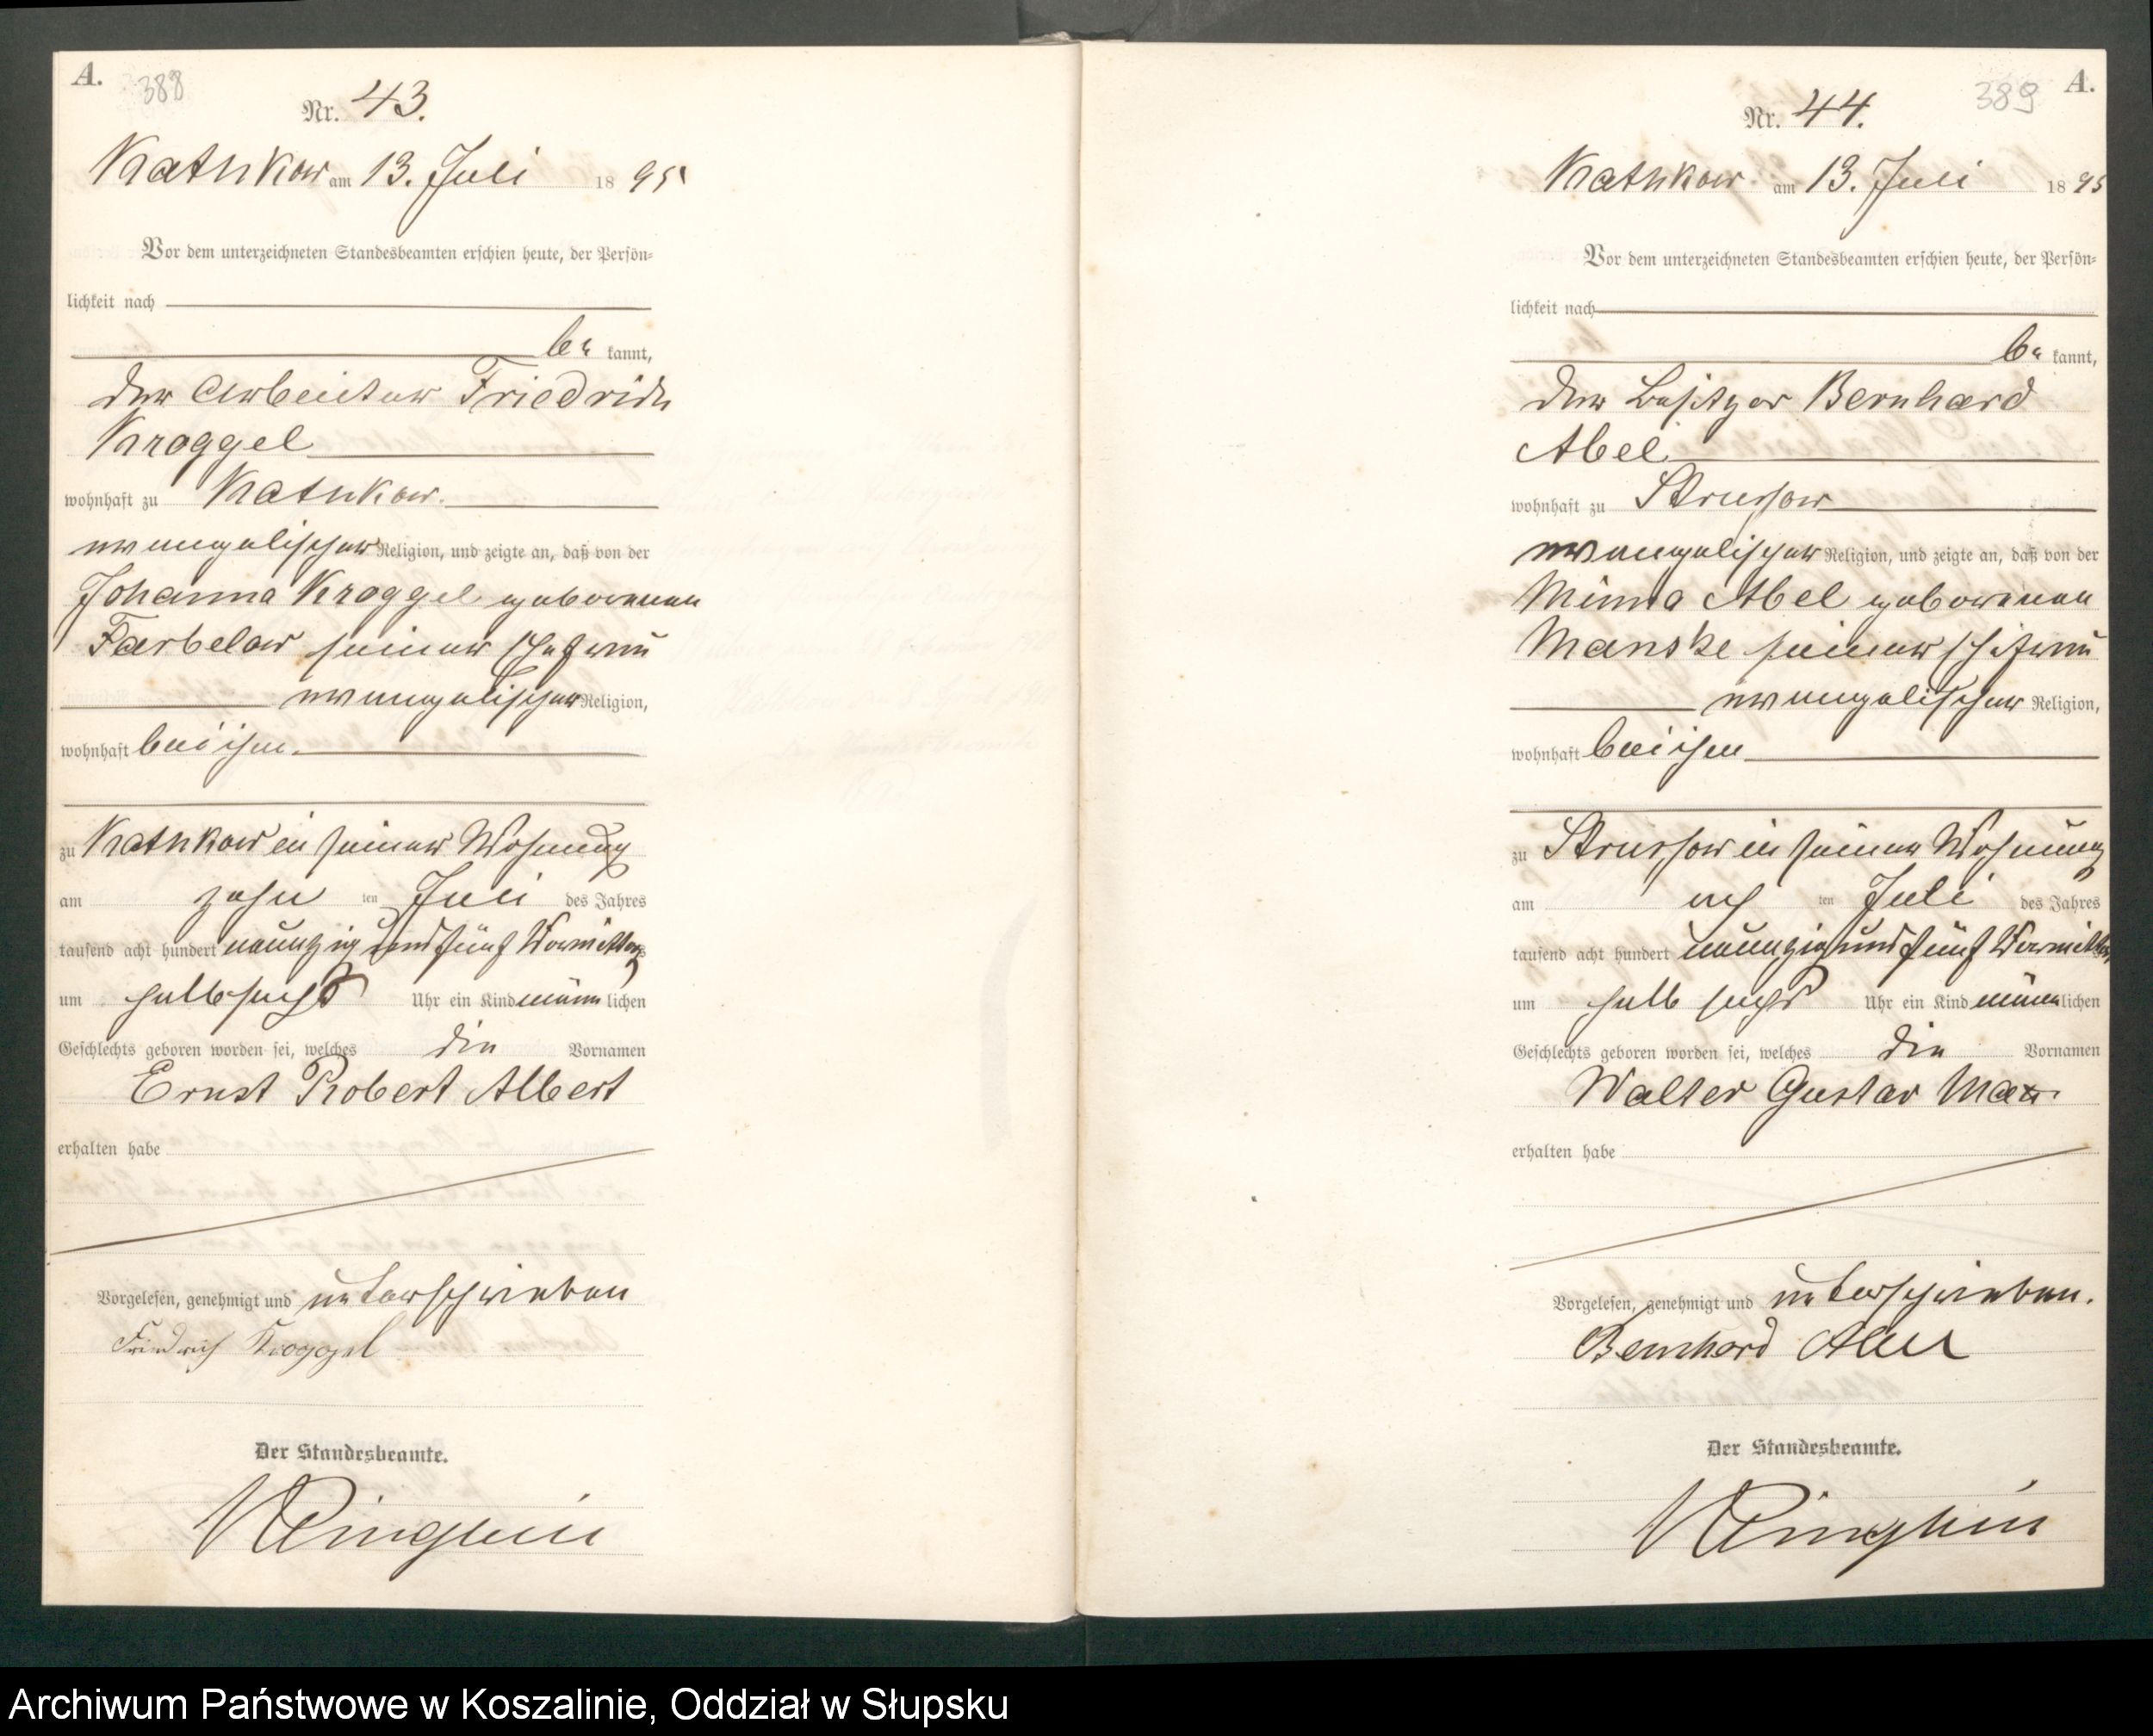 A.
388
Nr. 43.
Kathkow am 13. Juli 1895
Vor dem unterzeichneten Standesbeamten erschien heute, der Persön-
lichkeit nach
be kannt,
der Arbeiter Friedrich
Kroggel
wohnhaft zu Kathkow.
evangelischer Religion, und zeigte an, daß von der
Johanna Kroggel geborenen
Farbelow seiner Ehefrau
evangelischer Religion,
wohnhaft bei ihm.
zu Kathkow in seiner Wohnung
am zehn ten Juli des Jahres
tausend acht hundert neunzig und fünf Vormittags
um halb sechs Uhr ein Kind männlichen
Geschlechts geboren worden sei, welches die Vornamen
Ernst Robert Albert
erhalten habe
Vorgelesen, genehmigt und unterschrieben
Friedrich Kroggel
Der Standesbeamte.
A.
389
Nr. 44.
Kathkow am 13. Juli 1895
Vor dem unterzeichneten Standesbeamten erschien heute, der Persön-
lichkeit nach
be kannt,
der Besitzer Bernhard
Abel
wohnhaft zu Strussow
evangelischer Religion, und zeigte an, daß von der
Minna Abel geborenen
Manske seiner Ehefrau
evangelischer Religion,
wohnhaft bei ihm
zu Strussow in seiner Wohnung
am ach ten Juli des Jahres
tausend acht hundert neunzig und fünf Vormittags
um halb sechs Uhr ein Kind männlichen
Geschlechts geboren worden sei, welches die Vornamen
Walter Gustav Max.
erhalten habe
Vorgelesen, genehmigt und unterschrieben.
Bernhard Abel
Der Standesbeamte.
Archiwum Państwowe w Koszalinie, Oddział w Słupsku